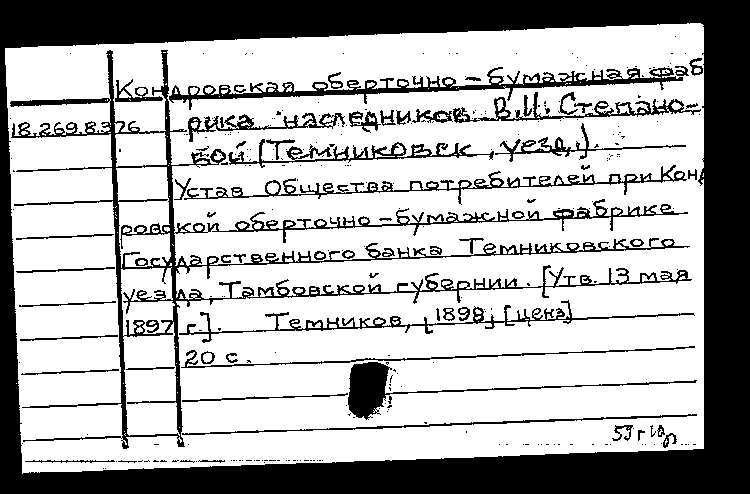 Кондровская оберточно-бумажная фаб
18.269.8.376 рика наследников В.И. Степано-
вой (Темниковск, уезд.).
Устав Общества потребителей при Конд
ровской оберточно-бумажной фабрике
Государственного банка Темниковского
уезда, Тамбовской губернии. [Утв. 13 мая
1897 г.]. Темников, [1898] [цена]
20 с.